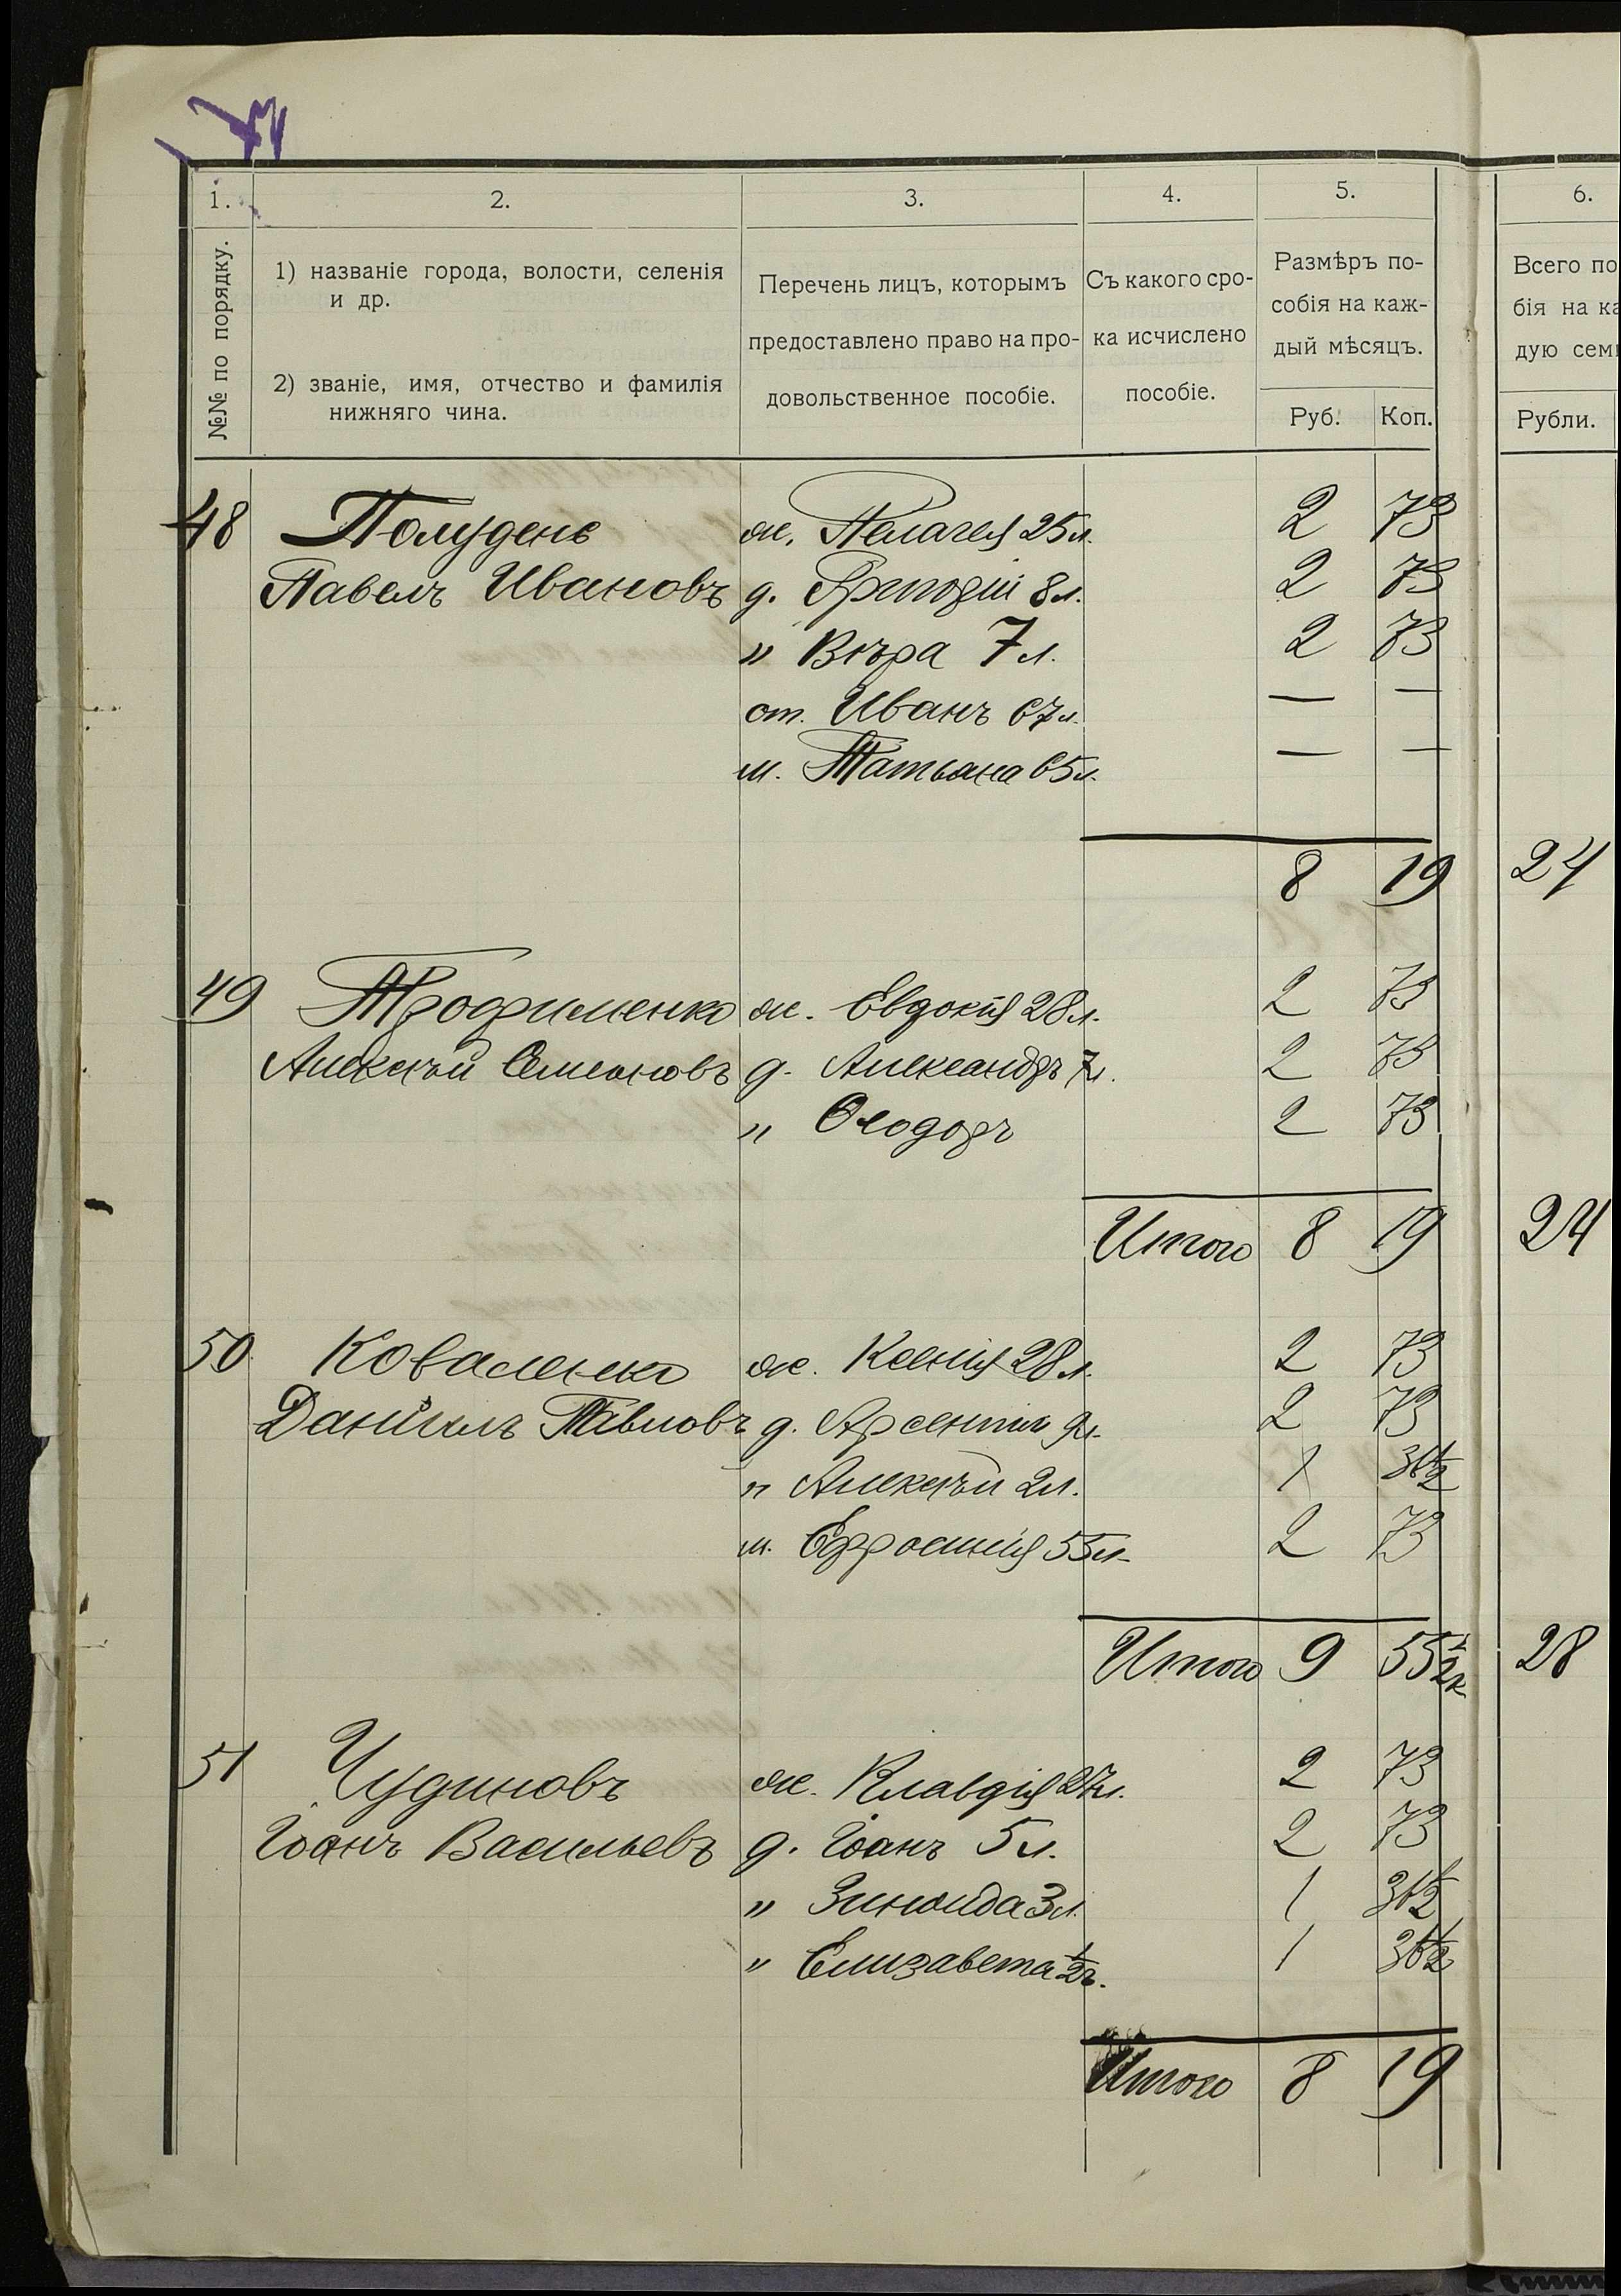 1. 2. 3. 4. 5. 6.
№№ по порядку.
1) названіе города, волости, селенія
и др.
2) званіе, имя, отчество и фамилія
нижняго чина.
Перечень лицъ, которымъ
предоставлено право на про-
довольственное пособіе.
Съ какого сро-
ка исчислено
пособіе.
Размѣръ по-
собія на каж-
дый мѣсяцъ.
Руб. Коп.
Всего по
бія на ка
дую сем
Рубли.
48 Полудень ж. Пелагея 25 л. 2 73
Павелъ Ивановъ д. Григорій 8 л. 2 73
" Вѣра 7 л. 2 73
от. Иванъ 67 л. — —
м. Татьана 65 л. — —
8 19 24
49 Трофименко ж. Евдокія 28 л. 2 73
Алексѣй Семеновъ д. Александръ 7 л. 2 73
" Ѳеодоръ 2 73
Итого 8 19 24
50 Коваленко ж. Ксенія 28 л. 2 73
Даніилъ Павловъ д. Арсентій 9 л. 2 73
" Алексѣй 2 л. 1 36½
м. Ефросинія 55 л. 2 73
Итого 9 55½ к 28
51 Чудиновъ ж. Клавдія 27 л. 2 73
Іоанъ Васильевъ д. Іоанъ 5 л. 2 73
" Зинаида 3 л. 1 36½
" Елизавета ½ г. 1 36½
Итого 8 19